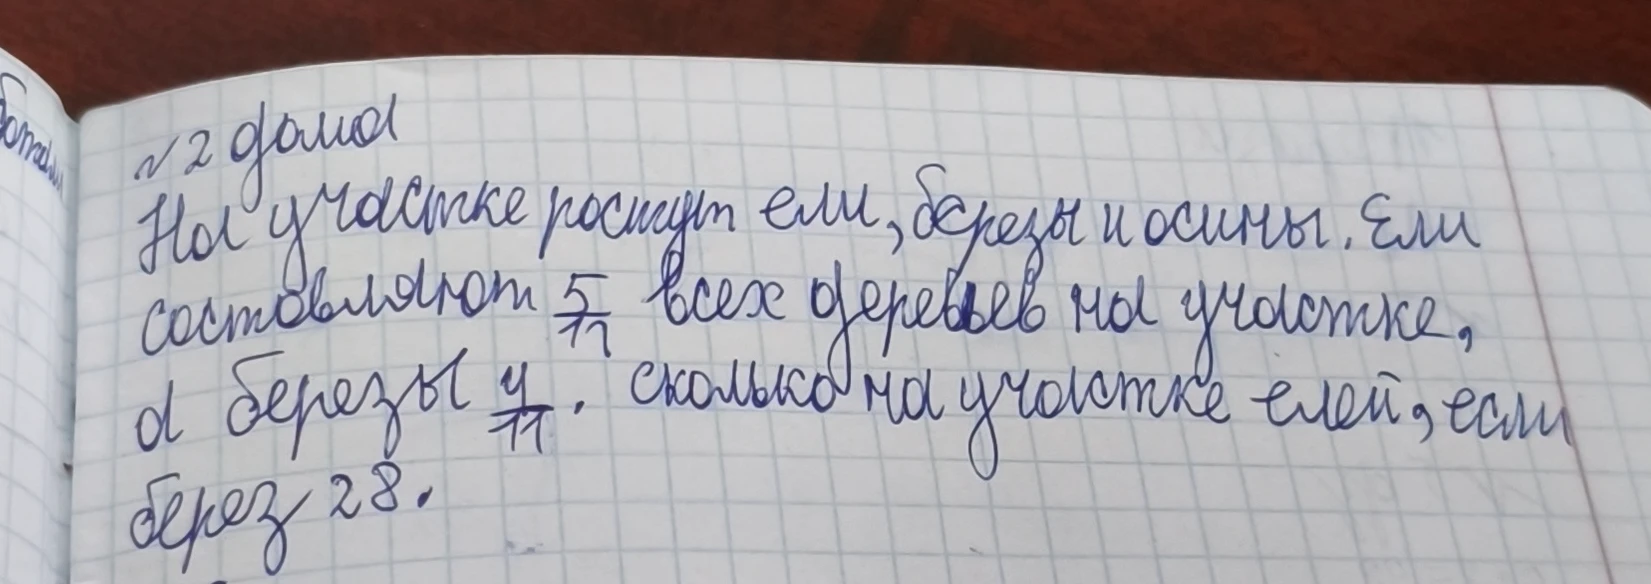 №2 дома
На участке ростут ели, березы и осины. Ели
составляют 5/11 всех деревьев на участке,
а березы 4/11. сколько на участке елей, если
берез 28.